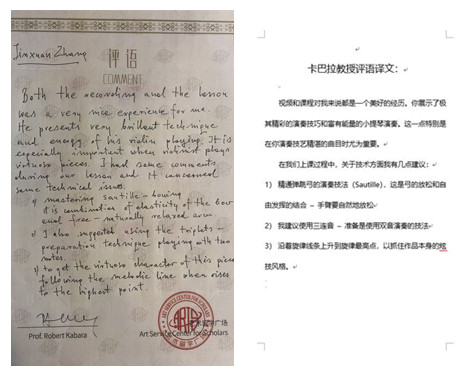 Jinxuan Zhang
评语
COMMENT
Both the recording and the lesson
was a very nice experience for me.
He presents very brilliant technique
and energy of his violin playing. It is
especially important when violinist plays
virtuoso pieces. I had some comments
during our lesson and it concerned
some technical issues.
mastering sautille - bowing
it is combination of elasticity of the bow
and free - naturally relaxed arm
I also suggested using the triplets -
preparation technique playing with two
notes.
to get the virtuoso character of this piece
following the melodic line when rises
to the highest point.
Prof. Robert Kabara
Art Service Center for Scholars
ART SERVICE CENTER FOR SCHOLARS
卡巴拉教授评语译文：
视频和课程对我来说都是一个美好的经历。你展示了极
其精彩的演奏技巧和富有能量的小提琴演奏。这一点特别是
在你演奏技艺精湛的曲目时尤为重要。
在我们上课过程中，关于技术方面我有几点建议：
1） 精通弹跳弓的演奏技法（Sautille），这是弓的放松和自
由发挥的结合 – 手臂要自然地放松
2） 我建议使用三连音 – 准备是使用双音演奏的技法
3） 沿着旋律线条上升到旋律最高点，以抓住作品本身的炫
技风格。